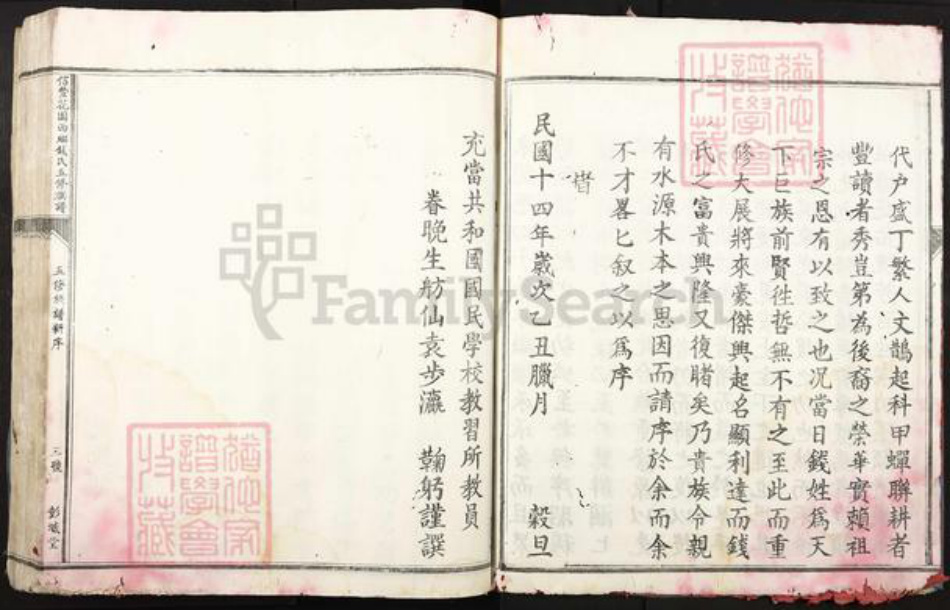 代户盛丁繁人文鵲起科甲蟬聯耕者
豐讀者秀豈第為後裔之榮華實賴祖
宗之恩有以致之也况當日錢姓爲天
下巨族前賢徃哲無不有之至此而重
修大展將來豪傑興起名顯利達而錢
氏之富貴興隆又復睹矣乃貴族令親
有水源木本之思因而請序於余而余
不才畧匕叙之以爲序
旹
民國十四年歲次乙丑臘月 榖旦
充當共和國國民學校教習所教員
眷晚生舫仙袁步瀛 鞠躬謹譔
信豐花園西鄉錢氏五修族譜
五修族譜新序
三號
彭城堂
猶他家
譜學會
收藏
猶他家
譜學會
收藏
FamilySearch